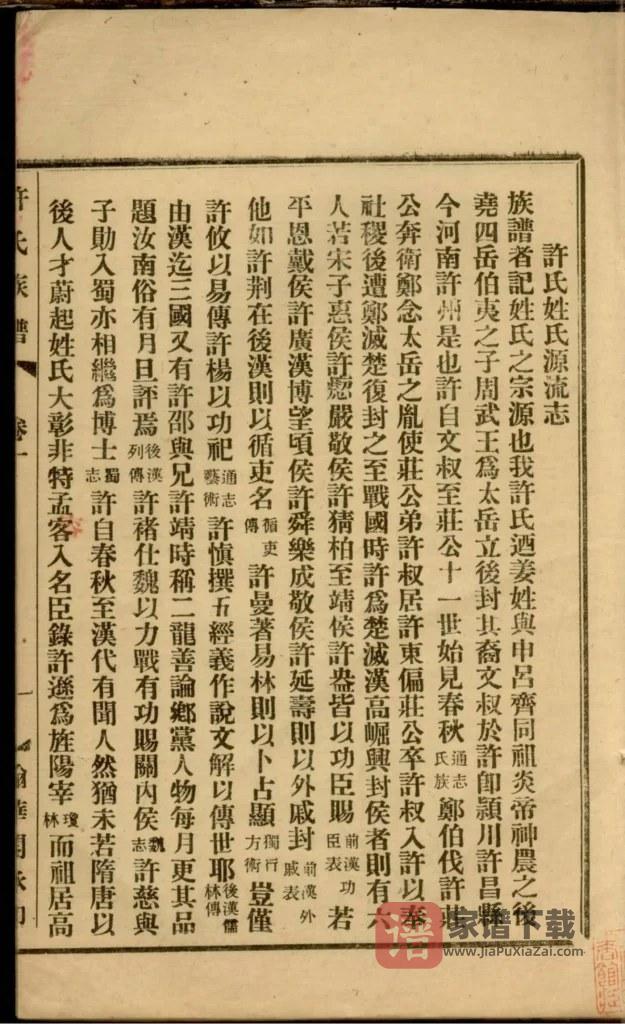 許氏姓氏源流志
族譜者記姓氏之宗源也我許氏迺姜姓與申呂齊同祖炎帝神農之後
堯四岳伯夷之子周武王為太岳立後封其裔文叔於許即潁川許昌縣
今河南許州是也許自文叔至莊公十一世始見春秋通志氏族鄭伯伐許莊
公奔衛鄭念太岳之胤使莊公弟許叔居許東偏莊公卒許叔入許以奉
社稷後遭鄭滅楚復封之至戰國時許為楚滅漢高崛興封侯者則有六
人若宋子惠侯許瘛嚴敬侯許猜柏至靖侯許盎皆以功臣賜前漢功臣表若
平恩戴侯許廣漢博望頃侯許舜樂成敬侯許延壽則以外戚封前漢外戚表
他如許荆在後漢則以循吏名循吏傳許曼著易林則以卜占顯獨行方術豈僅
許攸以易傳許楊以功祀通志藝術許慎撰五經義作說文解以傳世耶後漢儒林傳
由漢迄三國又有許邵與兄許靖時稱二龍善論鄉黨人物每月更其品
題汝南俗有月旦評焉後漢列傳許褚仕魏以力戰有功賜關內侯魏志許慈與
子勛入蜀亦相繼為博士蜀志許自春秋至漢代有聞人然猶未若隋唐以
後人才蔚起姓氏大彰非特孟容入名臣錄許遜為旌陽宰瓊林而祖居高
許氏族譜 卷一 一
譜 家谱下载
www.JiaPuXiaZai.com